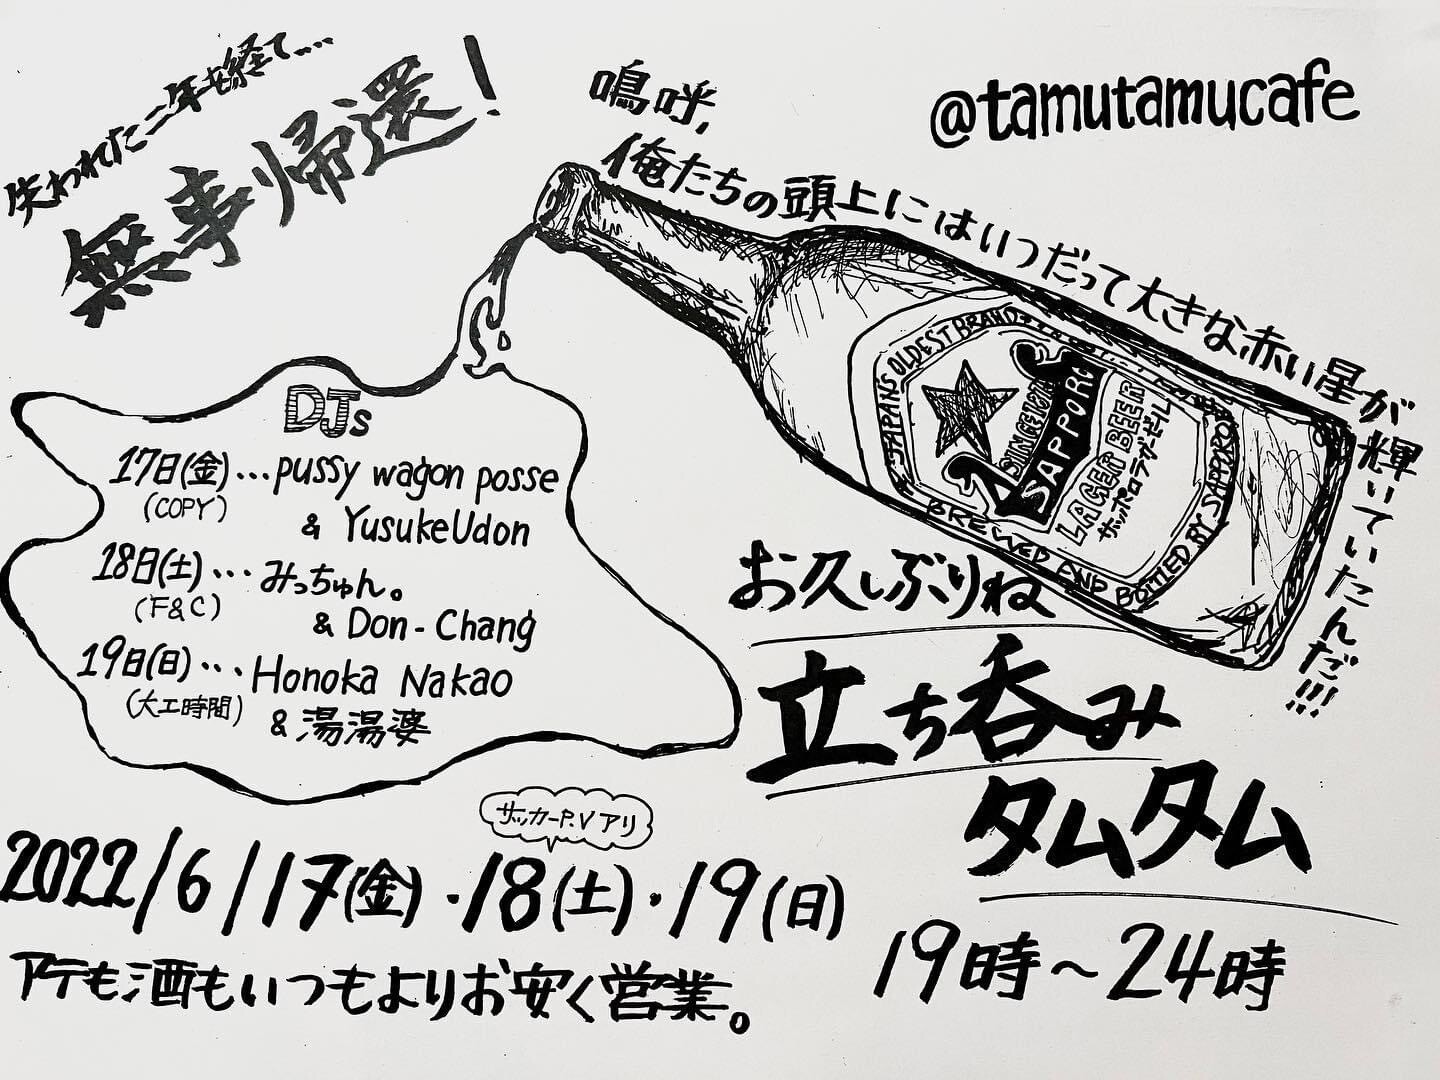 失われた二年を経て....
無事帰還！
嗚呼,
俺たちの頭上にはいつだって大きな赤い星が輝いていたんだ!!!
@tamutamucafe
THE JAPAN'S OLDEST BRAND
SINCE 1876
SAPPORO
LAGER BEER
サッポロラガービール
BREWED AND BOTTLED BY SAPPORO
DJs
17日(金)...pussy wagon posse
(COPY) & YusukeUdon
18日(土)...みっちゅん。
(F&C) & Don-Chang
19日(日)...Honoka Nakao
(大工時間) & 湯湯婆
お久しぶりね
立ち呑み
タムタム
サッカーP.Vアリ
2022/6/17(金)・18(土)・19(日)
19時〜24時
アテも酒もいつもよりお安く営業。